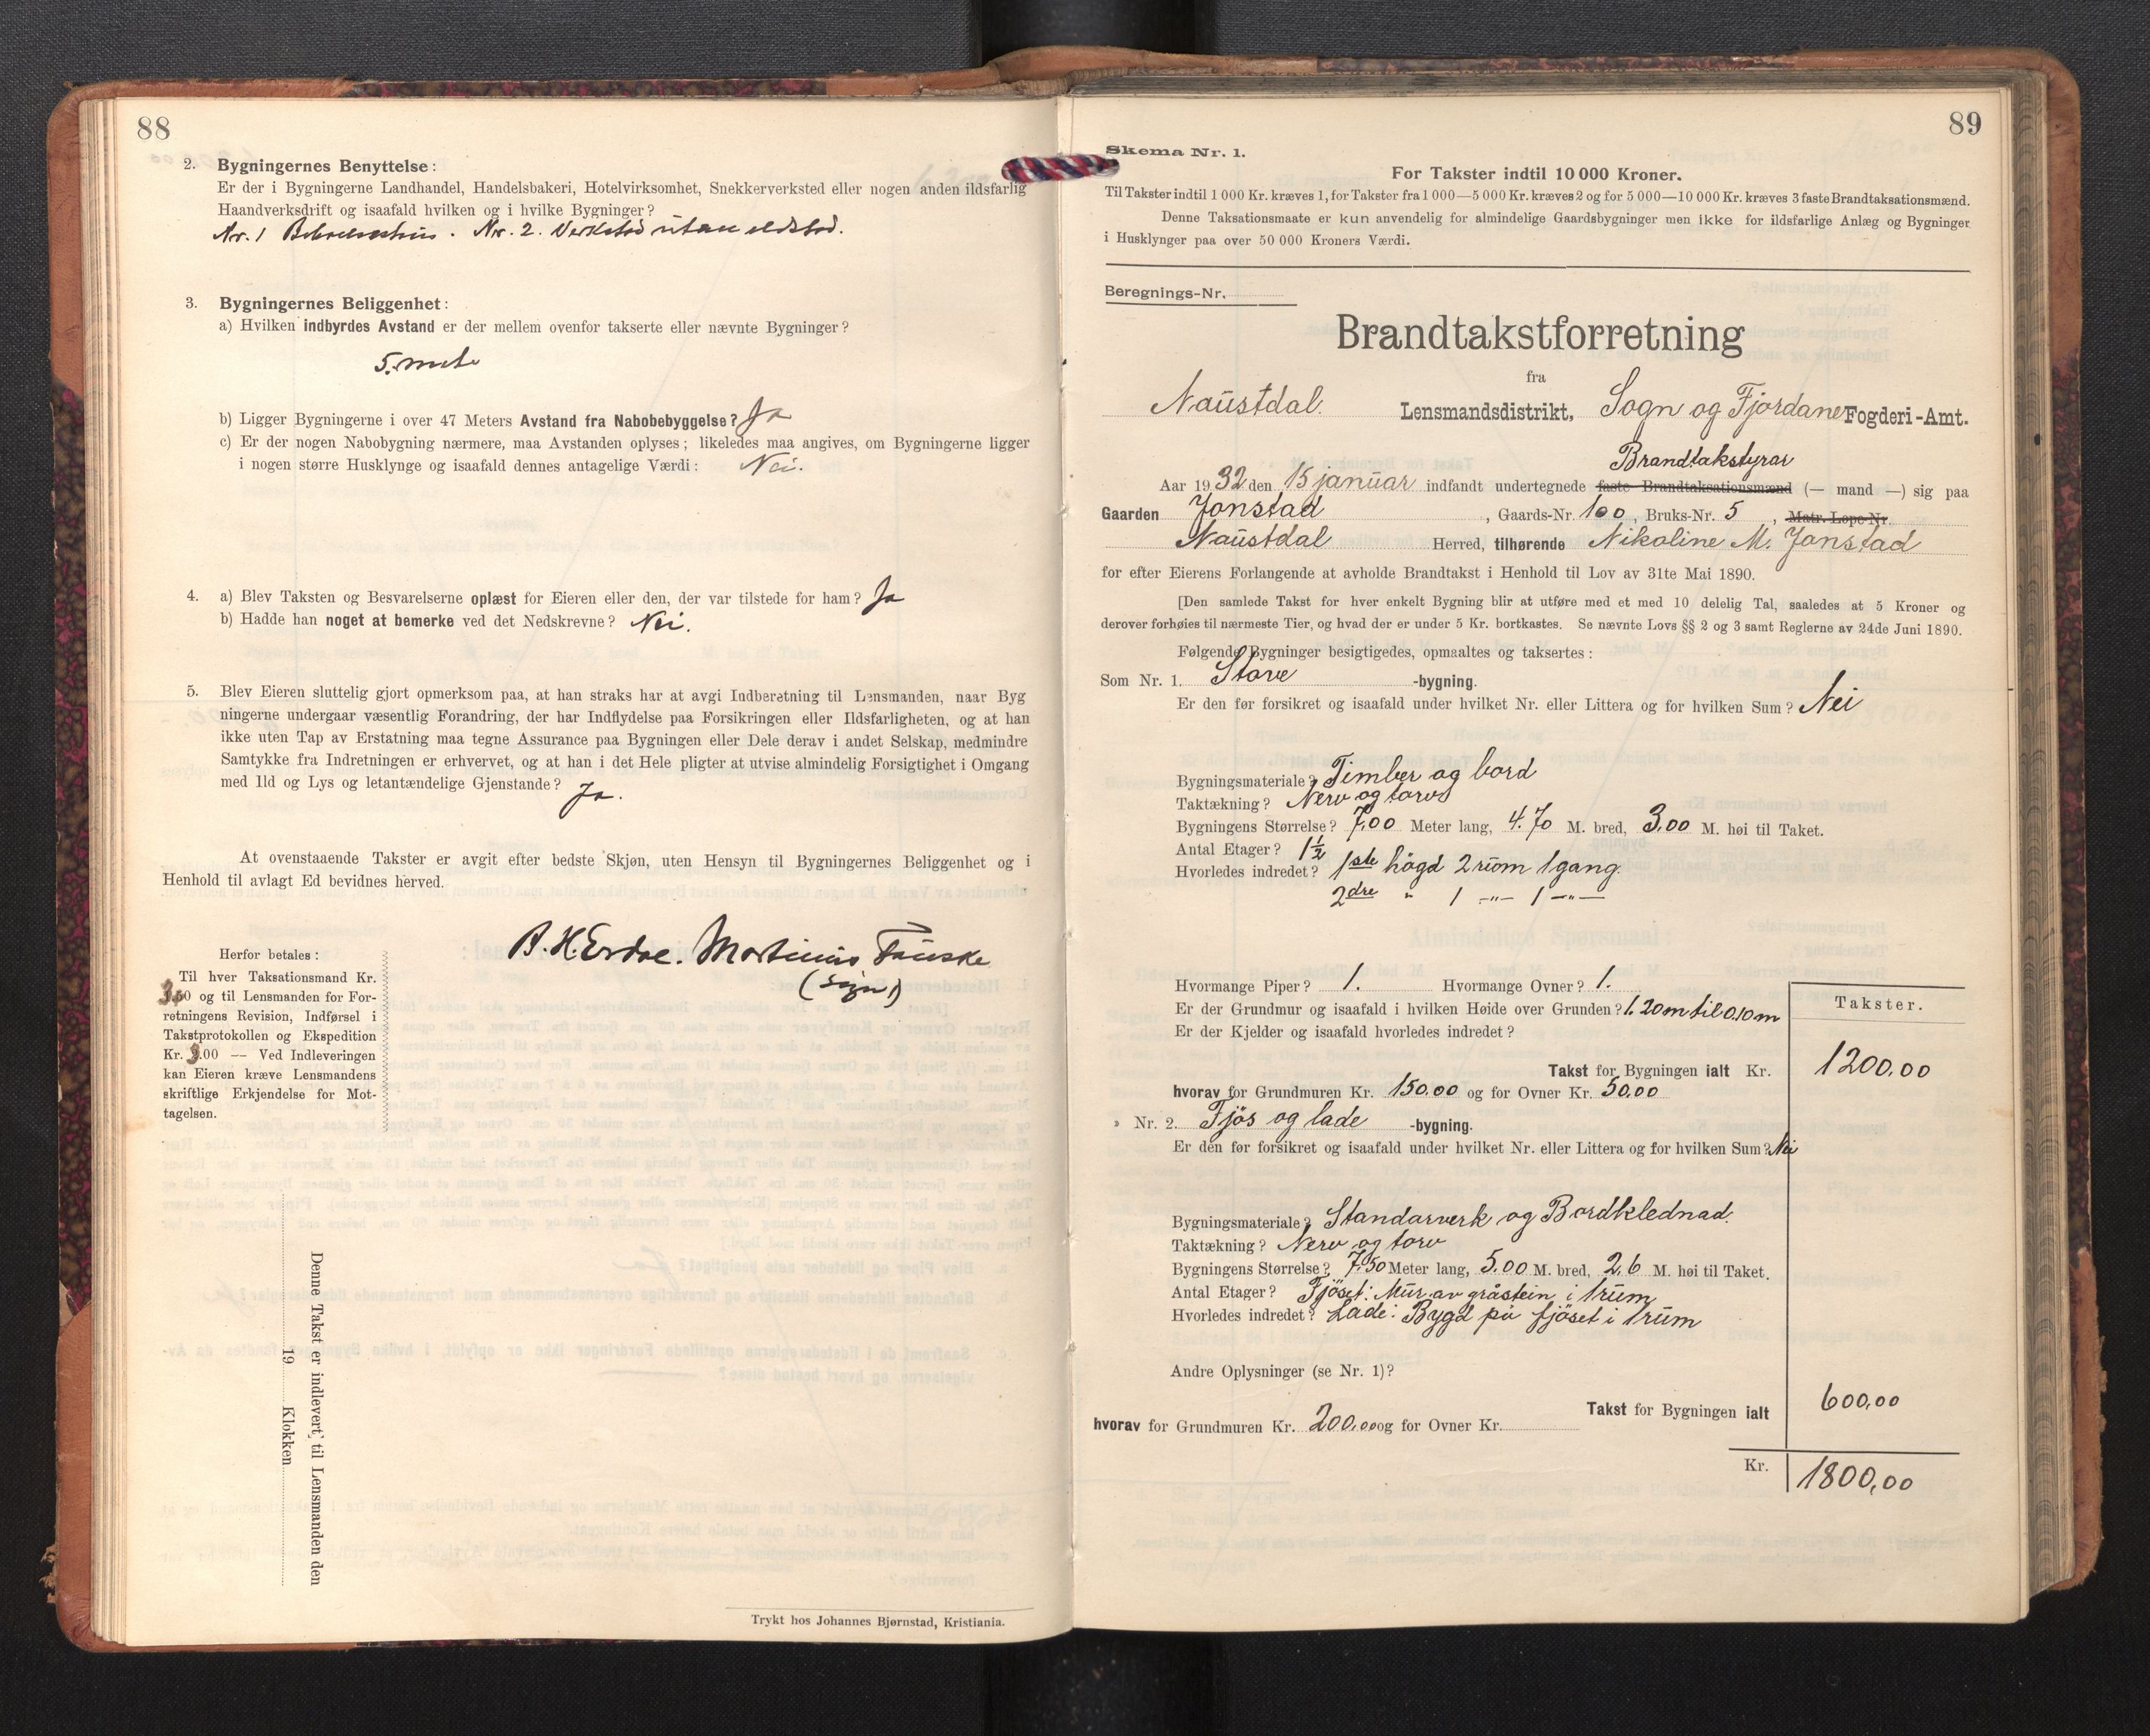 88
2. Bygningernes Benyttelse:
Er der i Bygningerne Landhandel, Handelsbakeri, Hotelvirksomhet, Snekkerverksted eller nogen anden ildsfarlig
Haandverksdrift og isaafald hvilken og i hvilke Bygninger?
Nr. 1 Beboelseshus. Nr. 2. Verkstad utan eldstad.
3. Bygningernes Beliggenhet:
a) Hvilken indbyrdes Avstand er der mellem ovenfor takserte eller nævnte Bygninger?
5. mete
b) Ligger Bygningerne i over 47 Meters Avstand fra Nabobebyggelse? Ja
c) Er der nogen Nabobygning nærmere, maa Avstanden oplyses; likeledes maa angives, om Bygningerne ligger
i nogen større Husklynge og isaafald dennes antagelige Værdi: Nei.
4. a) Blev Taksten og Besvarelserne oplæst for Eieren eller den, der var tilstede for ham? Ja
b) Hadde han noget at bemerke ved det Nedskrevne? Nei.
5. Blev Eieren sluttelig gjort opmerksom paa, at han straks har at avgi Indberetning til Lensmanden, naar Byg
ningerne undergaar væsentlig Forandring, der har Indflydelse paa Forsikringen eller Ildsfarligheten, og at han
ikke uten Tap av Erstatning maa tegne Assurance paa Bygningen eller Dele derav i andet Selskap, medmindre
Samtykke fra Indretningen er erhvervet, og at han i det Hele pligter at utvise almindelig Forsigtighet i Omgang
med Ild og Lys og letantændelige Gjenstande? Ja.
At ovenstaaende Takster er avgit efter bedste Skjøn, uten Hensyn til Bygningernes Beliggenhet og i
Henhold til avlagt Ed bevidnes herved.
Mortinus Fauske
(sign)
Herfor betales:
Til hver Taksationsmand Kr.
og til Lensmanden for For-
retningens Revision, Indførsel i
Takstprotokollen og Ekspedition
Kr. 3.00 — Ved Indleveringen
kan Eieren kræve Lensmandens
skriftlige Erkjendelse for Mot-
tagelsen.
Denne Takst er indlevert til Lensmanden den
19 Klokken
Trykt hos Johannes Bjørnstad, Kristiania.
89
Skema Nr. 1.
For Takster indtil 10 000 Kroner.
Til Takster indtil 1 000 Kr. kræves 1, for Takster fra 1 000—5 000 Kr. kræves 2 og for 5 000—10 000 Kr. kræves 3 faste Brandtaksationsmænd.
Denne Taksationsmaate er kun anvendelig for almindelige Gaardsbygninger men ikke for ildsfarlige Anlæg og Bygninger
i Husklynger paa over 50 000 Kroners Værdi.
Beregnings-Nr.
Brandtakstforretning
fra
Naustdal. Lensmandsdistrikt, Sogn og Fjordane Fogderi-Amt.
Brandtakstyrar
Aar 1932 den 15 januar indfandt undertegnede faste Brandtaksationsmænd (— mand —) sig paa
Gaarden Jonstad, Gaards-Nr. 100, Bruks-Nr. 5, Matr. Løpe-Nr.
Naustdal Herred, tilhørende Nikoline M. Jonstad
for efter Eierens Forlangende at avholde Brandtakst i Henhold til Lov av 31te Mai 1890.
[Den samlede Takst for hver enkelt Bygning blir at utføre med et med 10 delelig Tal, saaledes at 5 Kroner og
derover forhøies til nærmeste Tier, og hvad der er under 5 Kr. bortkastes. Se nævnte Lovs §§ 2 og 3 samt Reglerne av 24de Juni 1890.
Følgende Bygninger besigtigedes, opmaaltes og taksertes:
Som Nr. 1. Stove -bygning.
Er den før forsikret og isaafald under hvilket Nr. eller Littera og for hvilken Sum? Nei
Bygningsmateriale? Timber og bord
Taktækning? Nerv og torv
Bygningens Størrelse? 7,00 Meter lang, 4.70 M. bred, 3,00 M. høi til Taket.
Antal Etager? 1½
Hvorledes indredet? 1ste høgd 2 rum 1 gang.
2dre " 1 -"- 1 -"-
Hvormange Piper? 1. Hvormange Ovner? 1.
Er der Grundmur og isaafald i hvilken Høide over Grunden? 1.20 m til 0.10 m
Er der Kjelder og isaafald hvorledes indredet?
Takster.
Takst for Bygningen ialt Kr. 1200,00
hvorav for Grundmuren Kr. 150.00 og for Ovner Kr. 50.00
» Nr. 2. Fjøs og lade -bygning.
Er den før forsikret og isaafald under hvilket Nr. eller Littera og for hvilken Sum? Nei
Bygningsmateriale? Standarverk og Bordklednad.
Taktækning? Nerv og torv
Bygningens Størrelse? 7.50 Meter lang, 5.00 M. bred, 2,6 M. høi til Taket.
Antal Etager? Fjøset: Mur av gråstein i 1 rum
Hvorledes indredet? Lade: Bygd på fjøset i 1 rum
Andre Oplysninger (se Nr. 1)?
Takst for Bygningen ialt 600,00
hvorav for Grundmuren Kr. 200,00 og for Ovner Kr.
Kr. 1800,00